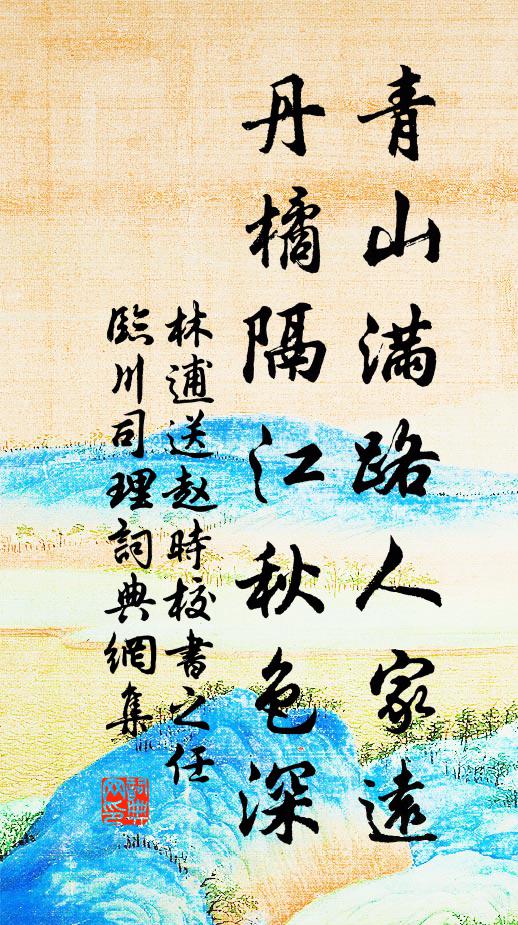 青山滿路人家遠
丹橘隔江秋色深
林逋送赵時校書之任
臨川司理詞典網集